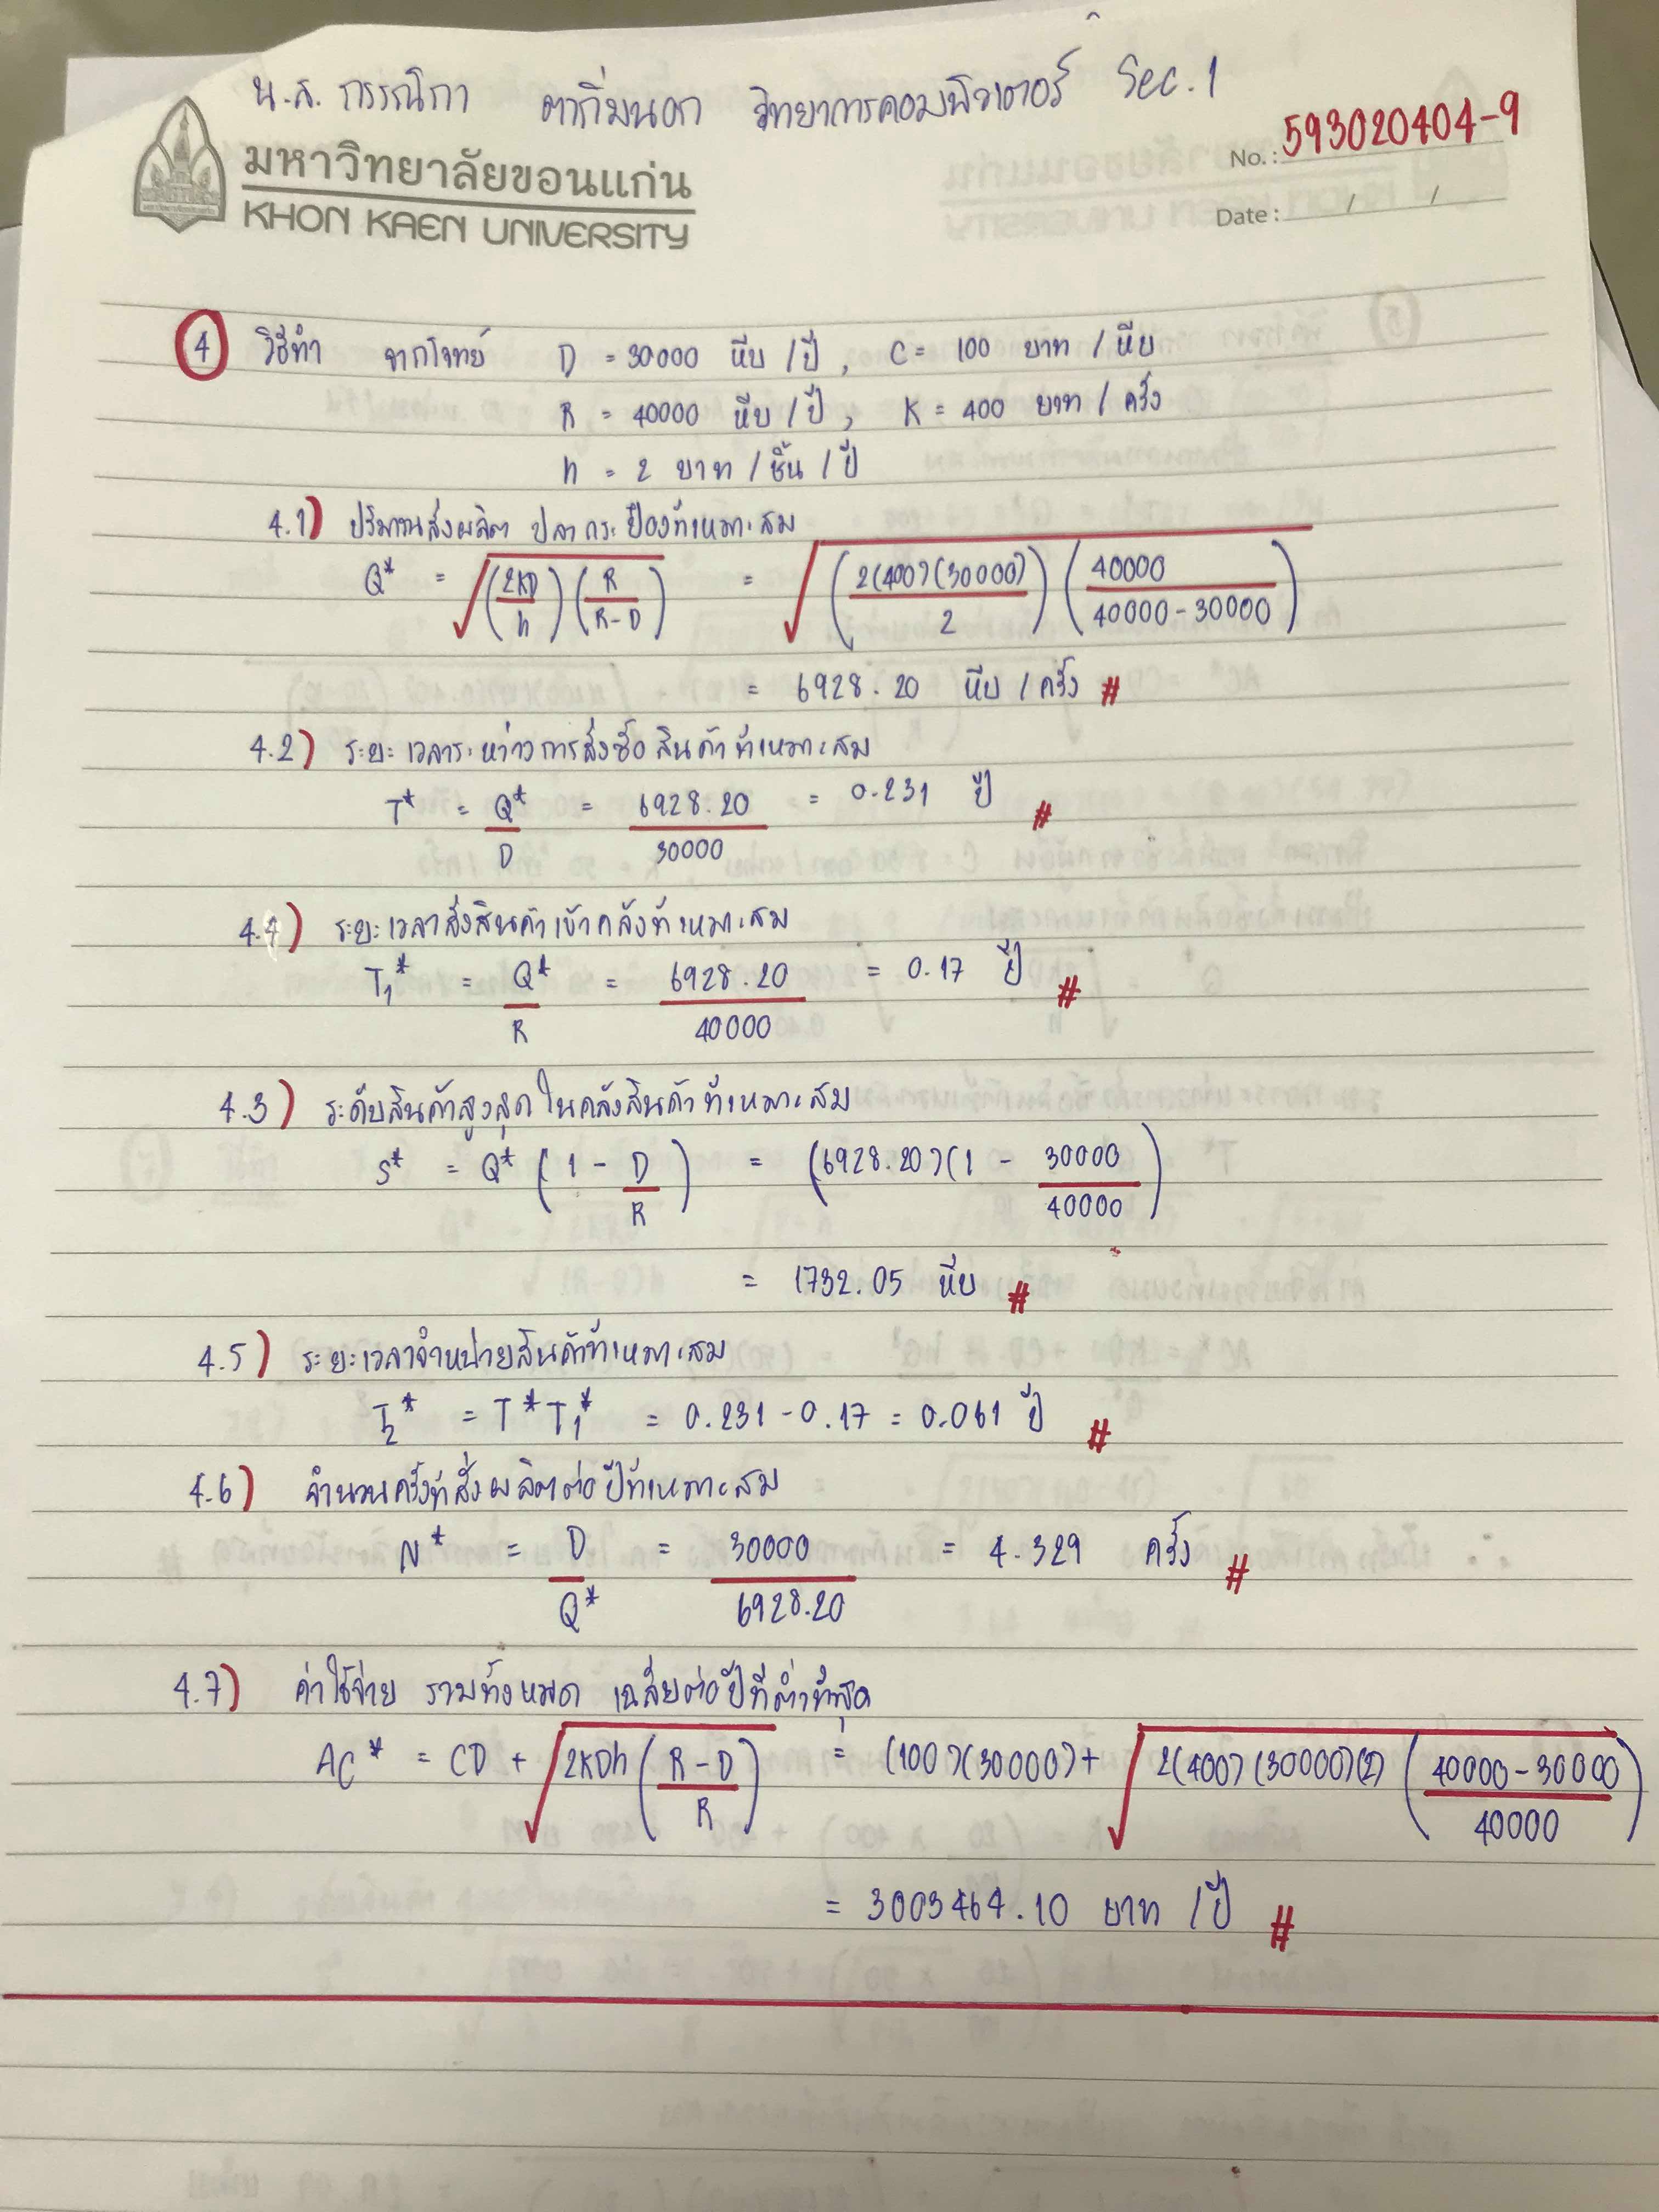 น.ส. กรรณิกา ตากิ่มนอก วิทยาการคอมพิวเตอร์ Sec.1
มหาวิทยาลัยขอนแก่น
KHON KAEN UNIVERSITY
No.: 593020404-9
Date: / /
4 วิธีทำ จากโจทย์ D = 30000 หีบ/ปี, C = 100 บาท/หีบ
R = 40000 หีบ/ปี, K = 400 บาท/ครั้ง
h = 2 บาท/ชิ้น/ปี
4.1) ปริมาณสั่งผลิต ปลากระป๋องที่เหมาะสม
Q* = √((2KD/h)(R/(R-D))) = √((2(400)(30000)/2)(40000/(40000-30000)))
= 6928.20 หีบ/ครั้ง #
4.2) ระยะเวลาระหว่างการสั่งซื้อสินค้าที่เหมาะสม
T* = Q*/D = 6928.20/30000 = 0.231 ปี #
4.4) ระยะเวลาส่งสินค้าเข้าคลังที่เหมาะสม
T₁* = Q*/R = 6928.20/40000 = 0.17 ปี #
4.3) ระดับสินค้าสูงสุดในคลังสินค้าที่เหมาะสม
S* = Q*(1 - D/R) = (6928.20)(1 - 30000/40000)
= 1732.05 หีบ #
4.5) ระยะเวลาจำหน่ายสินค้าที่เหมาะสม
T₂* = T* T₁* = 0.231 - 0.17 = 0.061 ปี #
4.6) จำนวนครั้งที่สั่งผลิตต่อปีที่เหมาะสม
N* = D/Q* = 30000/6928.20 = 4.329 ครั้ง #
4.7) ค่าใช้จ่าย รวมทั้งหมด เฉลี่ยต่อปีที่ต่ำที่สุด
AC* = CD + √(2KDh((R-D)/R)) = (100)(30000) + √(2(400)(30000)(2)((40000-30000)/40000))
= 3003464.10 บาท/ปี #